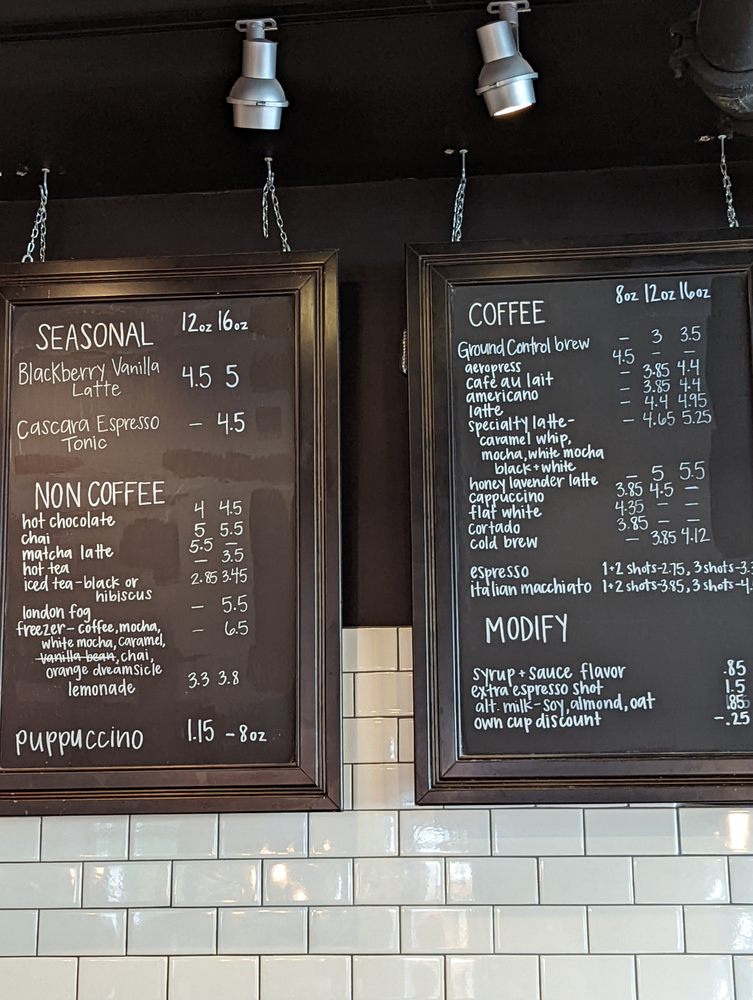 SEASONAL 12oz 16oz
Blackberry Vanilla
Latte 4.5 5
Cascara Espresso
Tonic – 4.5
NON COFFEE
hot chocolate 4 4.5
chai 5 5.5
matcha latte 5.5 –
hot tea – 3.5
iced tea-black or 2.85 3.45
hibiscus
london fog – 5.5
freezer-coffee, mocha, – 6.5
white mocha, caramel,
vanilla bean, chai,
orange dreamsicle
lemonade 3.3 3.8
puppuccino 1.15 - 8oz
COFFEE 8oz 12oz 16oz
Ground Control brew – 3 3.5
aeropress 4.5 – –
café au lait – 3.85 4.4
americano – 3.85 4.4
latte – 4.4 4.95
specialty latte- – 4.65 5.25
caramel whip,
mocha, white mocha
black + white
honey lavender latte – 5 5.5
cappuccino 3.85 4.5 –
flat white 4.35 – –
cortado 3.85 – –
cold brew – 3.85 4.12
espresso 1+2 shots-2.75, 3 shots-3.
italian macchiato 1+2 shots-3.85, 3 shots-4.
MODIFY
syrup + sauce flavor .85
extra espresso shot 1.5
alt. milk-soy, almond, oat .85
own cup discount -.25